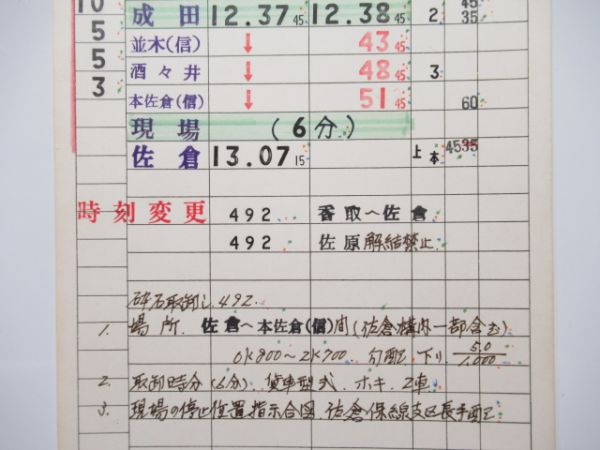 10
5
5
3
成田 12.37 45 12.38 45 2 45 35
並木(信) ↓ 43 45
酒々井 ↓ 48 45 3
本佐倉(信) ↓ 51 45 60
現場 (6分)
佐倉 13.07 15 上本 45 35
時刻変更 492 香取～佐倉
492 佐原解結禁止
砕石取卸し 492.
1. 場所. 佐倉～本佐倉(信)間(佐倉構内一部含む)
0K800～2K700 勾配 下り 5.0/1.000
2. 取卸時分(6分) 貨車型式 ホキ 2車
3. 現場の停止位置指示合図 佐倉保線支区長手配